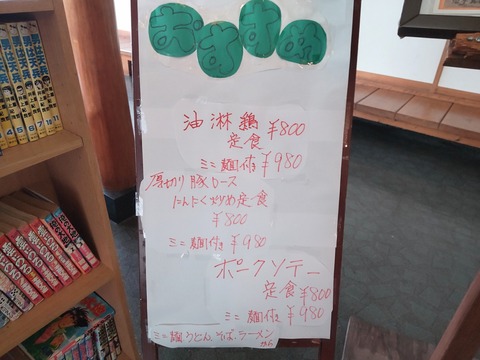 おすすめ
油淋鶏 ¥800
定食
ミニ麺付き ¥980
厚切り豚ロース
にんにく炒め定食
¥800
ミニ麺付き ¥980
ポークソテー
定食 ¥800
ミニ麺付き ¥980
ミニ麺うどん、そば、ラーメン
から